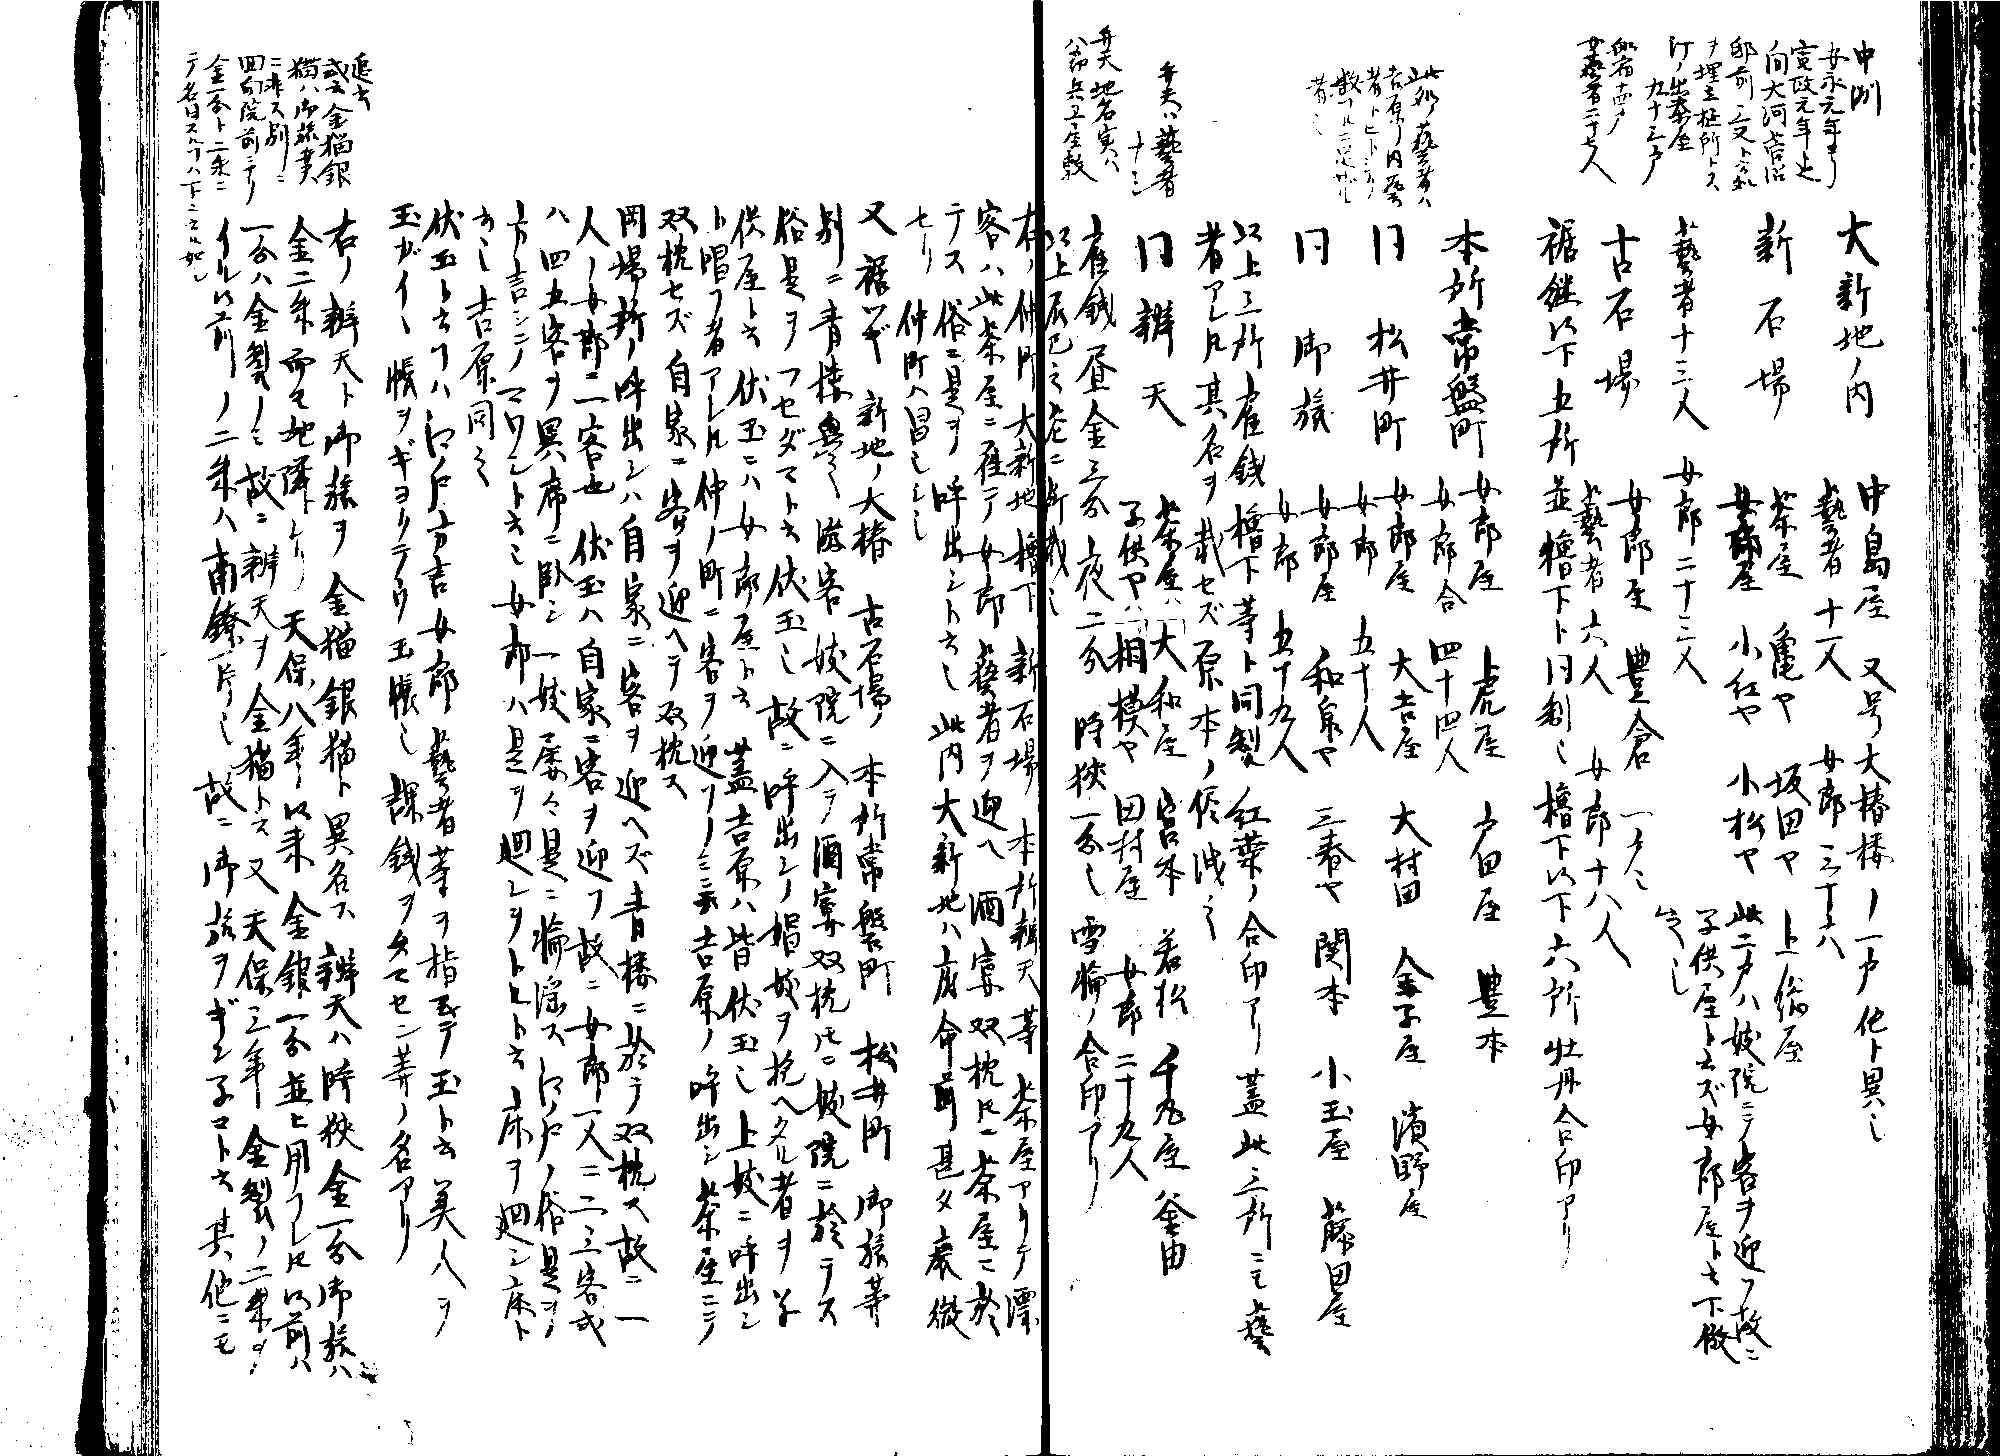 中洲
安永元年ヨリ
寛政元年迄
向大河岸沿
邸前三叉ト云所
ヲ埋立拒所トス
汀ノ出茶屋
九十三戸
船宿十四戸
女藝者二十七人
大新地ノ内 中島屋 又号大椿楼ノ一戸他ト異也
藝者十一人 女郎三十六
新石場 茶屋 亀や 坂田や 上総屋
女郎屋 小紅や 小松や 此二戸ハ妓院ニテ客ヲ迎フ故ニ
子供屋ト云ズ女郎屋ト云下倣
之
藝者十三人 女郎二十三人
古石場 女郎屋 豊倉 一戸也
藝者六人 女郎十八人
裾継以下五所並櫓下ト同制也櫓下以下六所牡丹合印アリ
本所常盤町 女郎屋 上虎屋 戸田屋 豊本
女郎合四十四人
同 松井町 女郎屋 大吉屋 大村田 金子屋 濱野屋
女郎五十人
同 御旅 女郎屋 和泉や 三春や 関本 小玉屋 藤田屋
女郎五十九人
以上三所雇銭櫓下等ト同製紅葉ノ合印アリ蓋此三所ニモ藝
者アレ𪜈其名ヲ載セズ原本ノ侭洩之
同 辨天 茶屋ハ大和屋 宮本 若松 千丸屋 釜由
子供やハ相模や 田村屋 女郎二十九人
雇銭昼金三分夜二分 時狭一分也雪輪ノ合印アリ
以上辰巳之花ニ所載也
此所藝者ハ
吉原ノ内藝
者トヒトシク
数フルニ足ラザル
者也
弁天ハ藝者
ナシ
弁天地名実ハ
八郎兵ヱ屋敷
右ノ仲町大新地櫓下新石場本所辨天等茶屋アリテ漂
客ハ此茶屋ニ在テ女郎藝者ヲ迎ヘ酒宴双枕𪜈ニ茶屋ニ於
テス俗ニ是ヲ呼出シト云也此内大新地ハ府命前甚タ衰微
セリ仲町ハ昌也シ
又裾ツギ新地ノ大椿 古石場ノ本所常盤町 松井町 御旅等
別ニ青楼無ク游客妓院ニ入テ酒宴双枕𪜈ニ妓院ニ於テス
俗是ヲフセダマト云伏玉也故ニ呼出シノ娼妓ヲ抱ヘタル者ヲ子
供屋ト云伏玉ニハ女郎屋ト云蓋吉原ハ皆伏玉也上妓ニ呼出シ
ト唱フ者アレ𪜈仲ノ町ニ客ヲ迎フノミ吉原ノ呼出シ茶屋ニテ
双枕セズ自家ニ客ヲ迎ヘテ双枕ス
岡場所ノ呼出シハ自家ニ客ヲ迎ヘズ青楼ニ於テ双枕ス故ニ一
人ノ女郎ニ一客也 伏玉ハ自家ニ客ヲ迎フ故ニ女郎一人ニ二三客或
ハ四五客ヲ異席ニ臥シ一妓屡々是ニ輪淫ス江戸ノ俗是ヲ
方言シテマワシト云也女郎ハ是ヲ廻シヲトルト云床ヲ廻シ床ト
云也 吉原同之
伏玉ト云フハ江戸方言女郎藝者等ヲ指テ玉ト云美人ヲ
玉ガイヽ 帳ヲギヨクテウ玉帳也 課銭ヲ玉セン等ノ名アリ
右ノ辨天ト御旅ヲ金猫銀猫ト異名ス辨天ハ時狭金一分御旅ハ
金二朱而モ地隣レリ天保八年以来金銀一分並ヒ用フレ𪜈以前ハ
一分ハ金製ノミ故ニ辨天ヲ金猫トス又天保三年金製ノ二朱ヲ
イル以前ノ二朱ハ南鐐一片也故ニ御旅ヲギン子コト云其他ニモ
追云
或云金猫銀
猫ハ御旅弁天
ニ非ス別ニ
回向院前ニアリ
金一分ト二朱ニ
テ名目スルハ下ニ云如シ